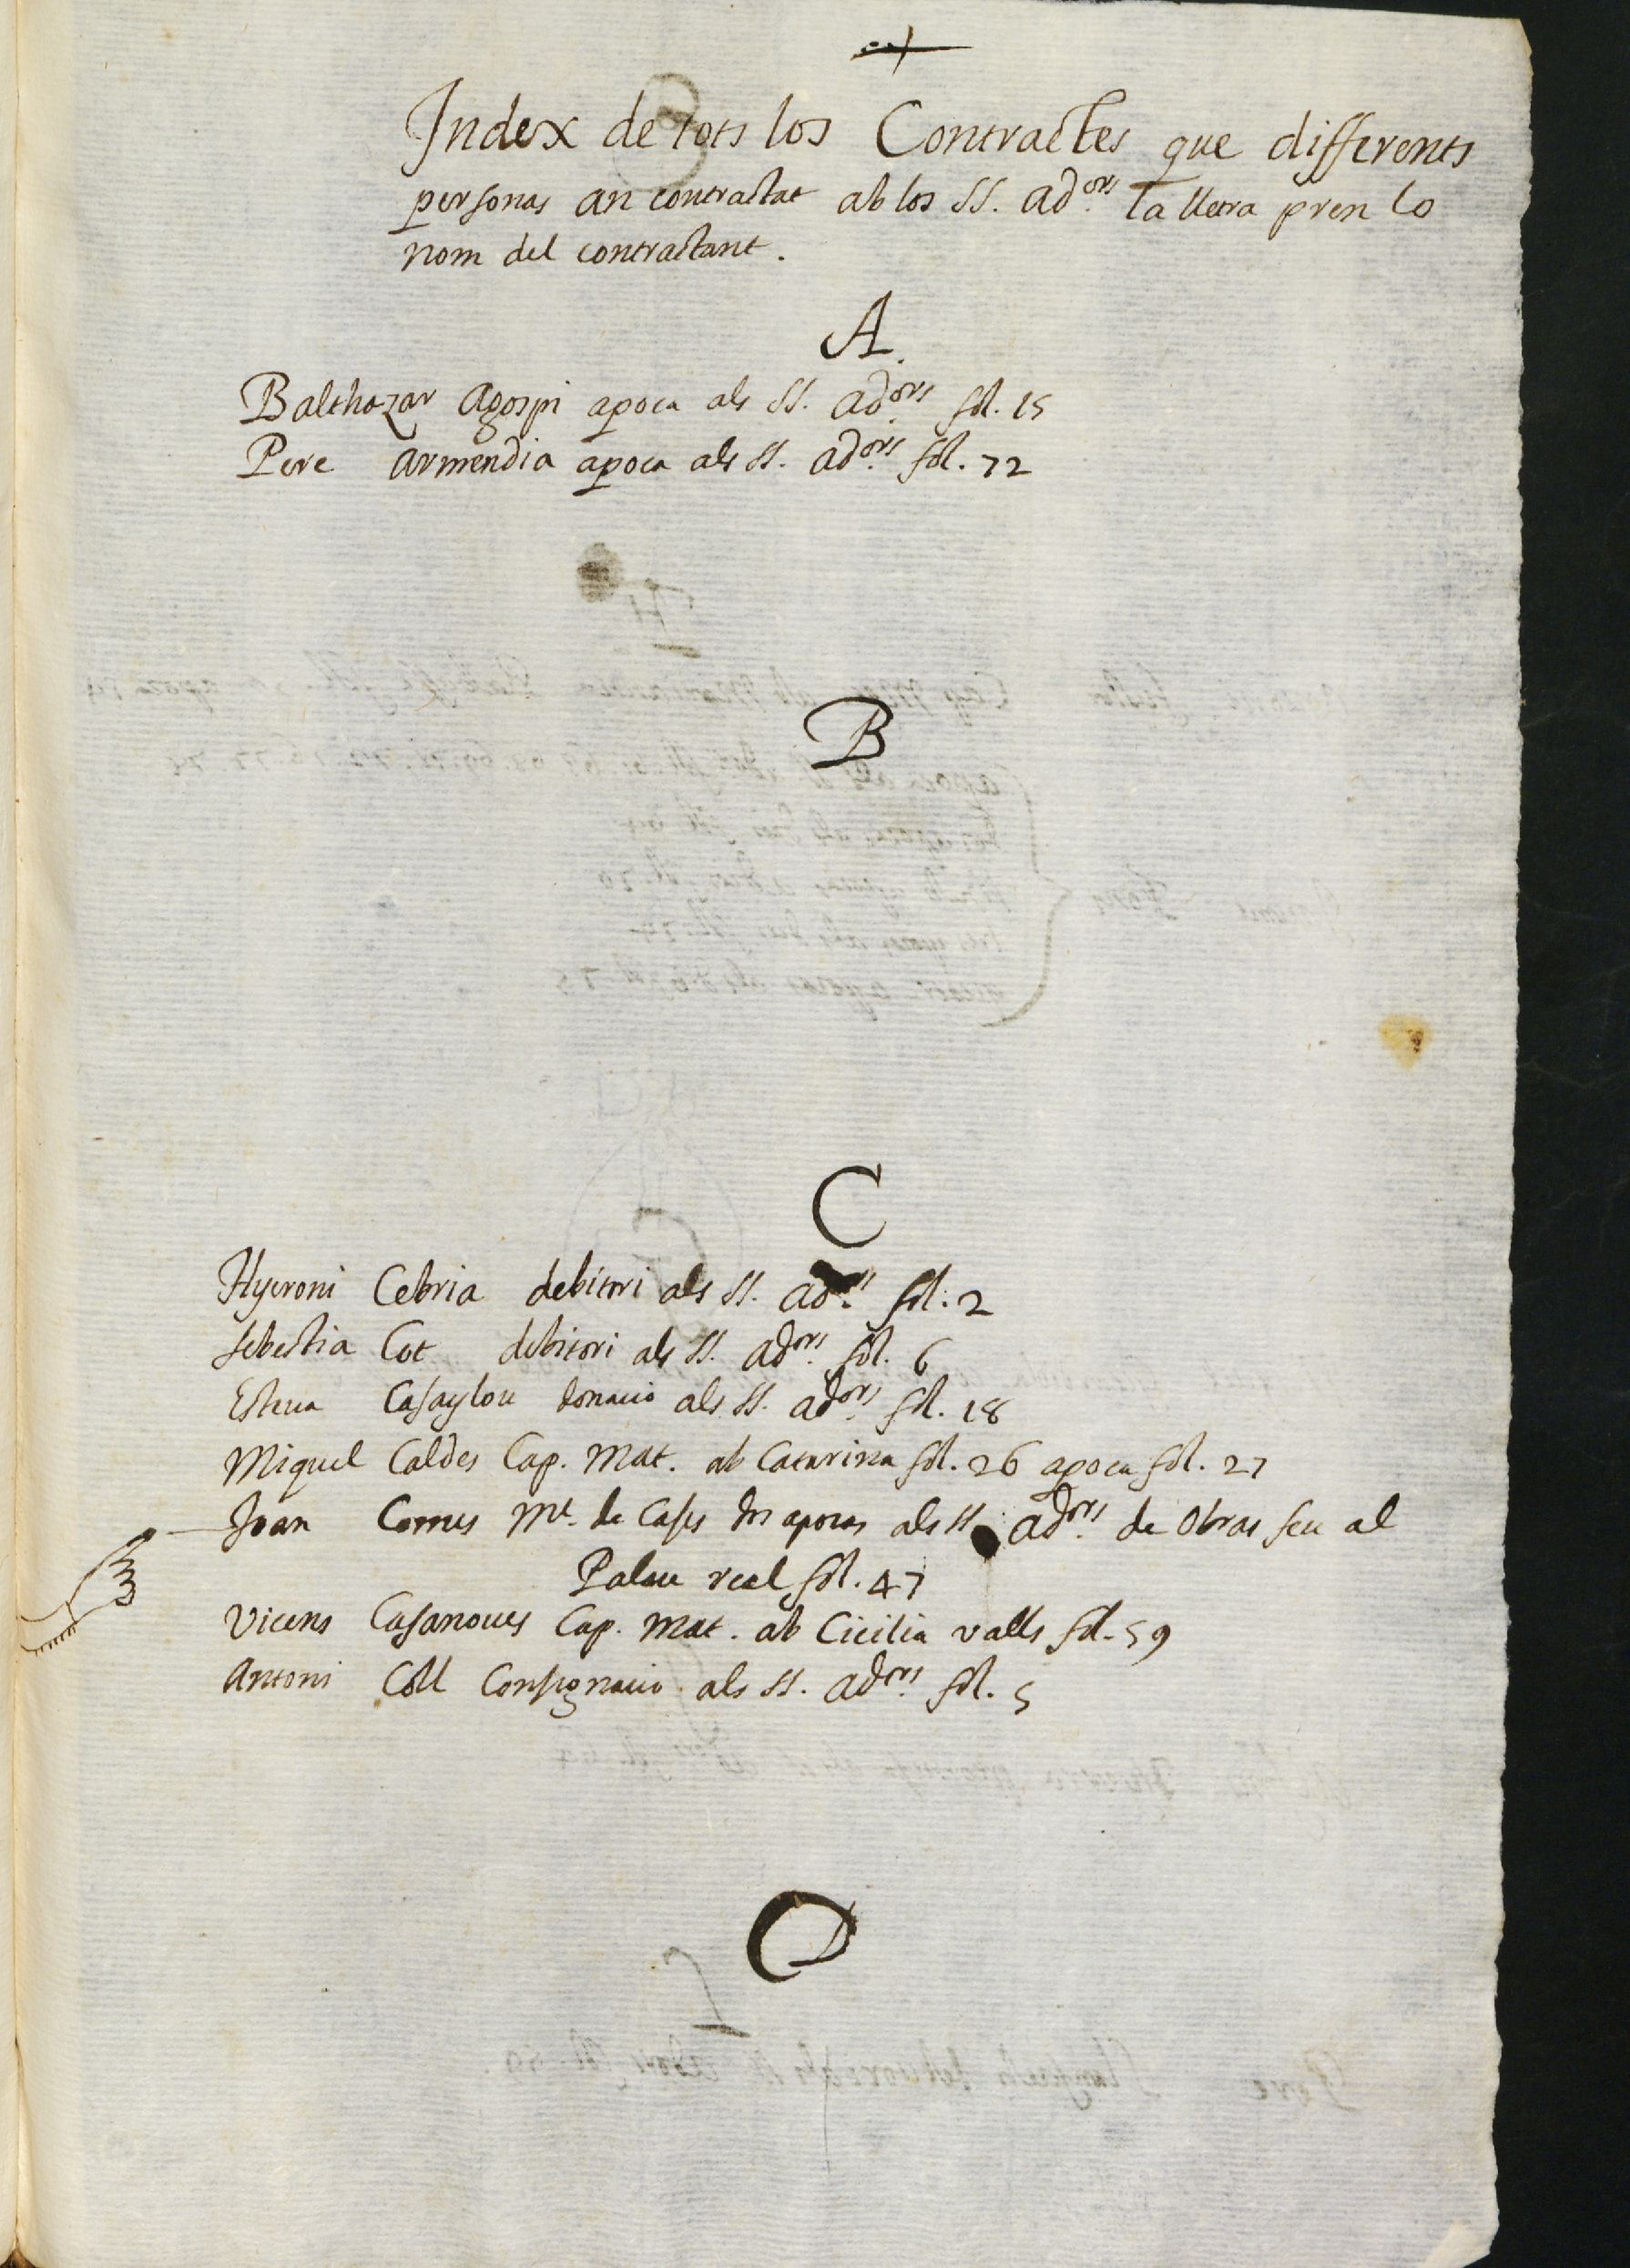 Index de tots los Contractes que differents
personas an contractat ab los SS. ad.ors la lletra pren lo
nom del contractant.
A.
Balthazar Agospi apoca als SS. ad.ors fol. 15
Pere Armendia apoca als SS. ad.ors fol. 72
B
C
Hyeroni Cebria debitori als SS. ad.rs fol. 2
Sebestia Cot debitori als SS. ad.ors fol. 6
Esteva Casaylou donacio als SS. ad.ors fol. 18
Miquel Caldes Cap. Mat. ab Catarina fol. 26 apoca fol. 27
Joan Comes Mt. de Cases dos apocas als SS. ad.ors de Obras feu al
Palau real fol. 47
Vicens Casanoves Cap. Mat. ab Cicilia Valls fol. 59
Antoni Coll Consignacio als SS. ad.ors fol. 5
D